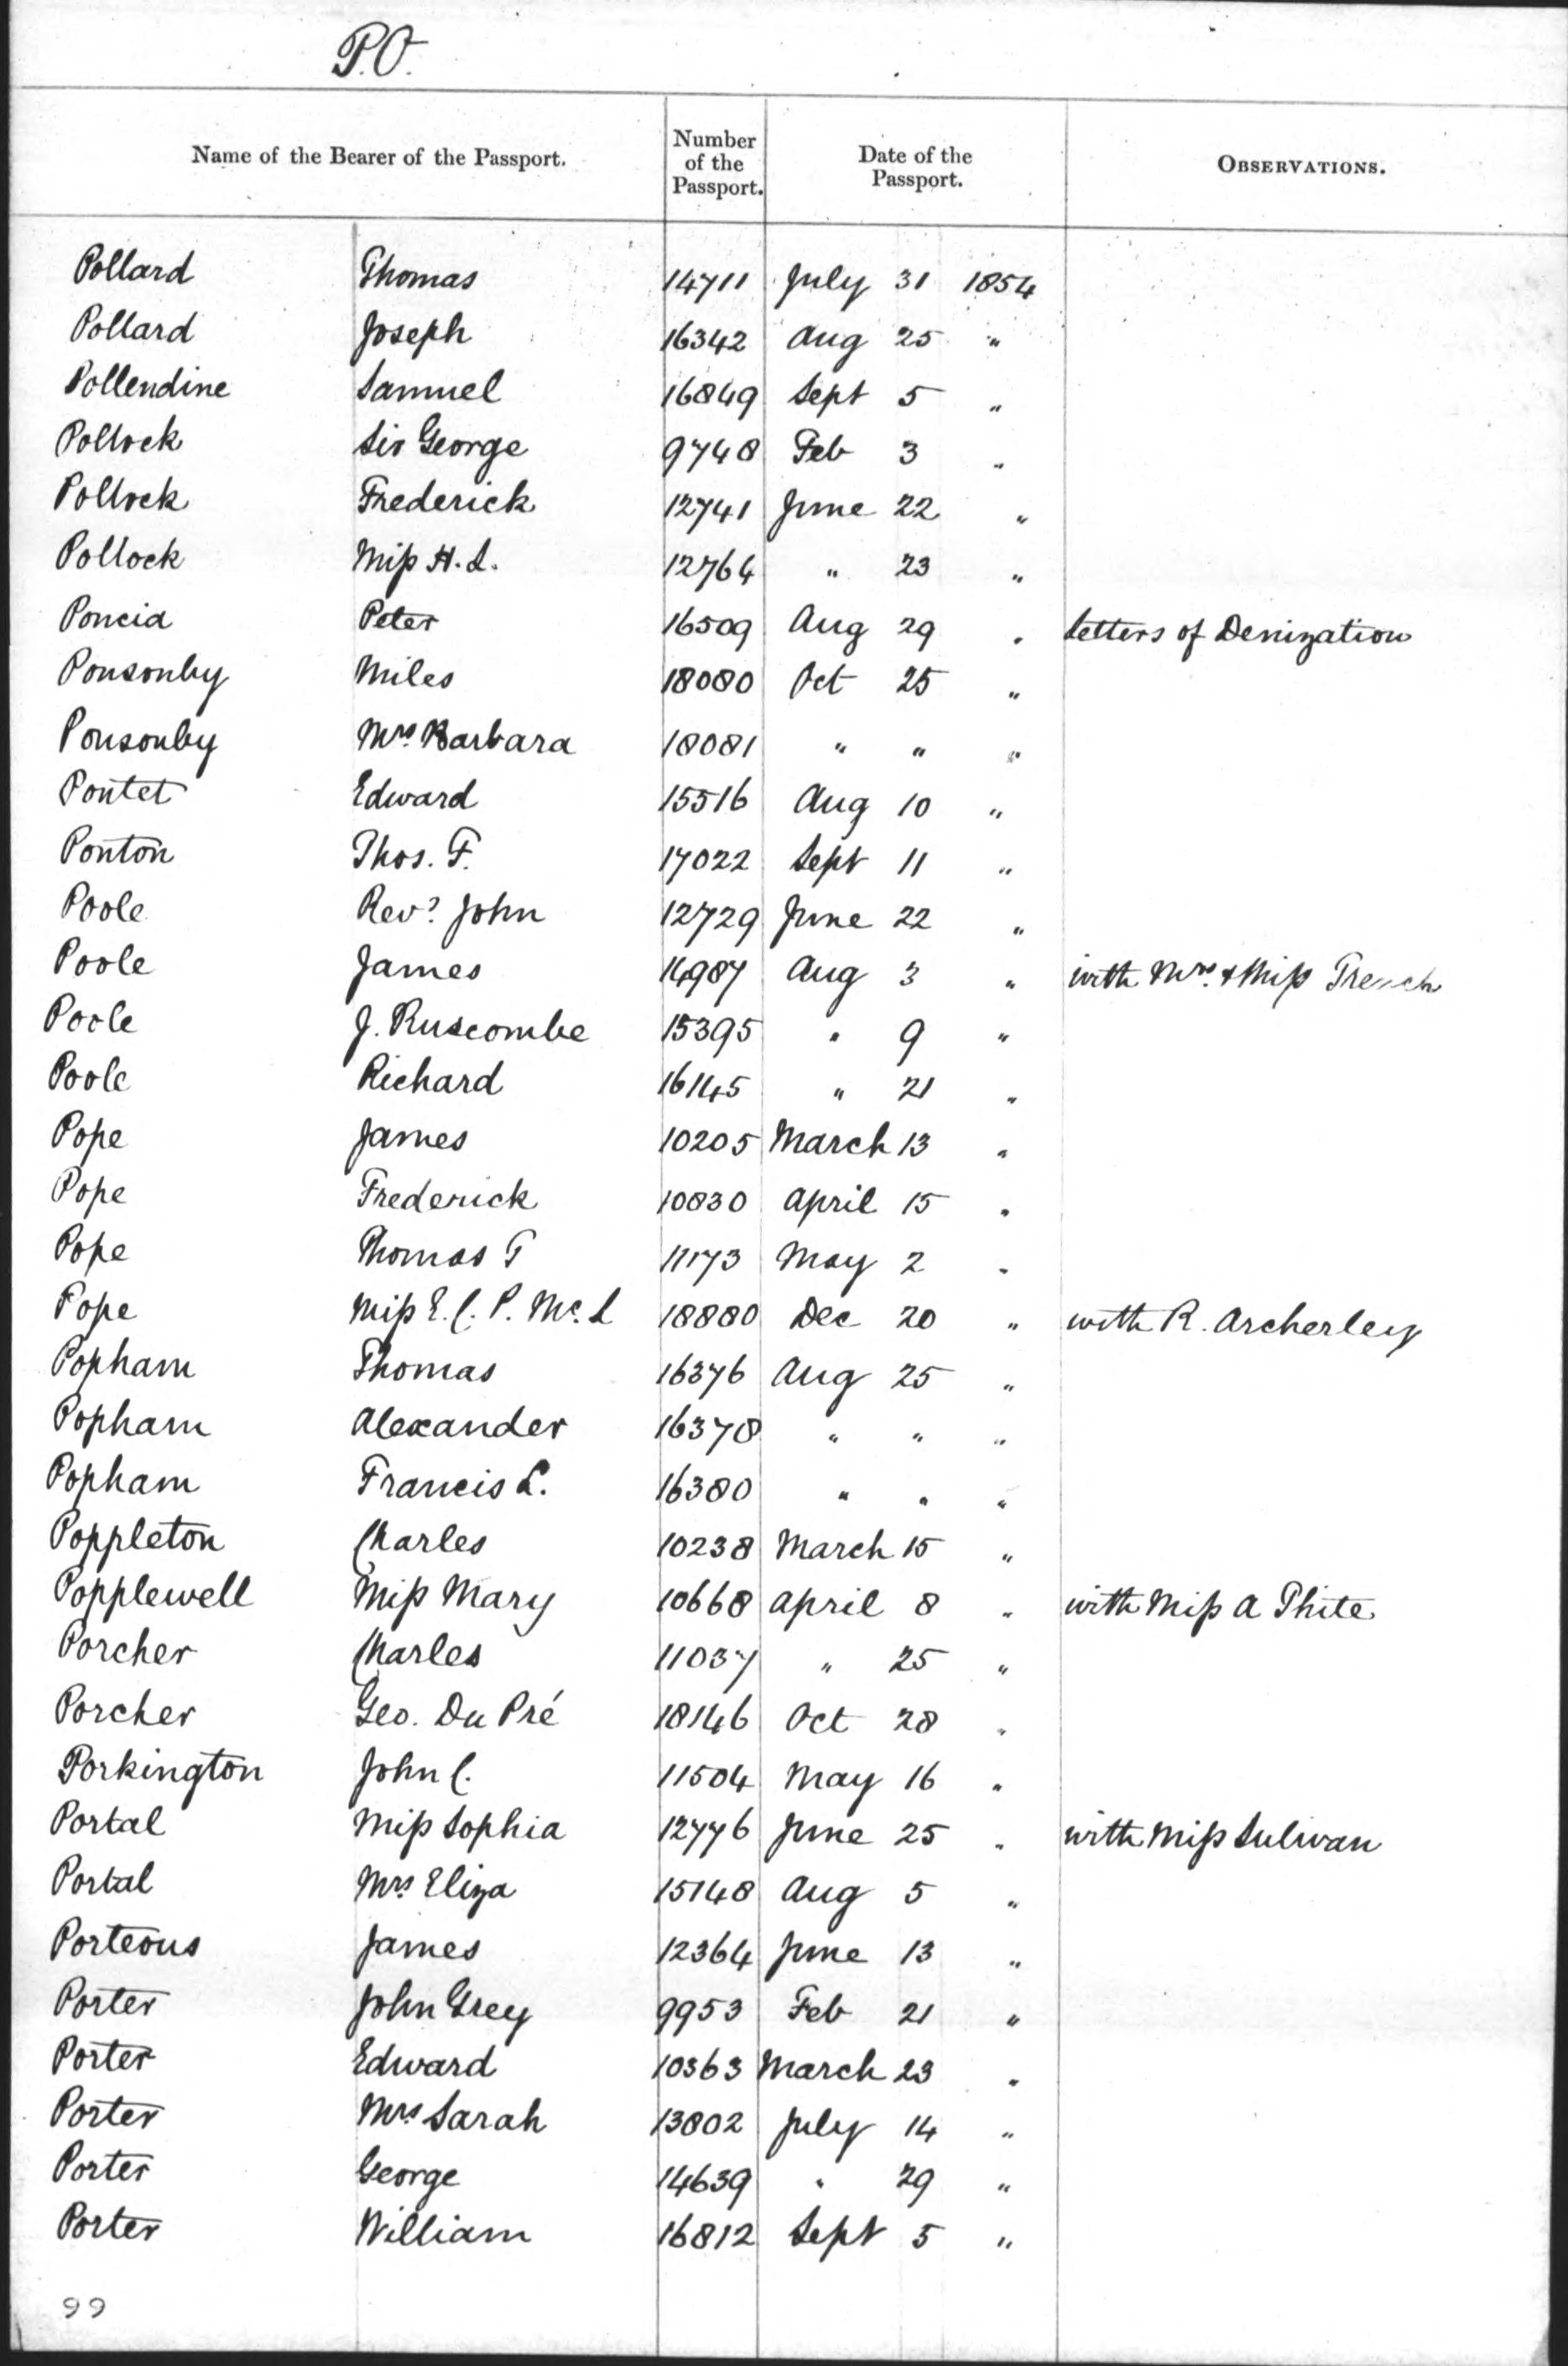 P.O.
Name of the Bearer of the Passport. Number of the Passport. Date of the Passport. OBSERVATIONS.
Pollard Thomas 14711 July 31 1854
Pollard Joseph 16342 Aug 25 "
Pollendine Samuel 16849 Sept 5 "
Pollock Sir George 9748 Feb 3 "
Pollock Frederick 12741 June 22 "
Pollock Miss H. L. 12764 " 23 "
Poncia Peter 16509 Aug 29 " Letters of Denization
Ponsonby Miles 18080 Oct 25 "
Ponsonby Mrs. Barbara 18081 " " "
Pontet Edward 15516 Aug 10 "
Ponton Thos. F. 17022 Sept 11 "
Poole Revd. John 12729 June 22 "
Poole James 14987 Aug 3 " with Mrs. & Miss French
Poole J. Ruscombe 15395 " 9 "
Poole Richard 16145 " 21 "
Pope James 10205 March 13 "
Pope Frederick 10830 April 15 "
Pope Thomas T 11173 May 2 "
Pope Miss E. C. P. Mc. L 18880 Dec 20 " with R. Archerley
Popham Thomas 16376 Aug 25 "
Popham Alexander 16378 " " "
Popham Francis L. 16380 " " "
Poppleton Charles 10238 March 15 "
Popplewell Miss Mary 10668 April 8 " with Miss A Thite
Porcher Charles 11037 " 25 "
Porcher Geo. Du Pré 18146 Oct 28 "
Porkington John C. 11504 May 16 "
Portal Miss Sophia 12776 June 25 " with Miss Sulivan
Portal Mrs. Eliza 15148 Aug 5 "
Porteous James 12364 June 13 "
Porter John Grey 9953 Feb 21 "
Porter Edward 10363 March 23 "
Porter Mrs Sarah 13802 July 14 "
Porter George 14639 " 29 "
Porter William 16812 Sept 5 "
99